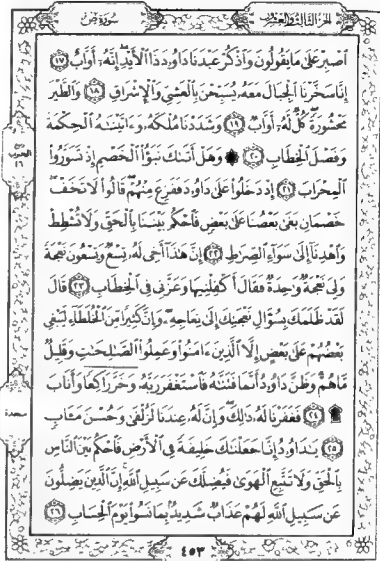 الجزء الثالث والعشرون
سورة ص
ٱصۡبِرۡ عَلَىٰ مَا يَقُولُونَ وَٱذۡكُرۡ عَبۡدَنَا دَاوُۥدَ ذَا ٱلۡأَيۡدِۖ إِنَّهُۥٓ أَوَّابٌ ١٧
إِنَّا سَخَّرۡنَا ٱلۡجِبَالَ مَعَهُۥ يُسَبِّحۡنَ بِٱلۡعَشِيِّ وَٱلۡإِشۡرَاقِ ١٨ وَٱلطَّيۡرَ
مَحۡشُورَةٗۖ كُلّٞ لَّهُۥٓ أَوَّابٞ ١٩ وَشَدَدۡنَا مُلۡكَهُۥ وَءَاتَيۡنَٰهُ ٱلۡحِكۡمَةَ
وَفَصۡلَ ٱلۡخِطَابِ ٢٠ ۞ وَهَلۡ أَتَىٰكَ نَبَؤُاْ ٱلۡخَصۡمِ إِذۡ تَسَوَّرُواْ
ٱلۡمِحۡرَابَ ٢١ إِذۡ دَخَلُواْ عَلَىٰ دَاوُۥدَ فَفَزِعَ مِنۡهُمۡۖ قَالُواْ لَا تَخَفۡۖ
خَصۡمَانِ بَغَىٰ بَعۡضُنَا عَلَىٰ بَعۡضٖ فَٱحۡكُم بَيۡنَنَا بِٱلۡحَقِّ وَلَا تُشۡطِطۡ
وَٱهۡدِنَآ إِلَىٰ سَوَآءِ ٱلصِّرَٰطِ ٢٢ إِنَّ هَٰذَآ أَخِي لَهُۥ تِسۡعٞ وَتِسۡعُونَ نَعۡجَةٗ
وَلِيَ نَعۡجَةٞ وَٰحِدَةٞ فَقَالَ أَكۡفِلۡنِيهَا وَعَزَّنِي فِي ٱلۡخِطَابِ ٢٣ قَالَ
لَقَدۡ ظَلَمَكَ بِسُؤَالِ نَعۡجَتِكَ إِلَىٰ نِعَاجِهِۦۖ وَإِنَّ كَثِيرٗا مِّنَ ٱلۡخُلَطَآءِ لَيَبۡغِي
بَعۡضُهُمۡ عَلَىٰ بَعۡضٍ إِلَّا ٱلَّذِينَ ءَامَنُواْ وَعَمِلُواْ ٱلصَّٰلِحَٰتِ وَقَلِيلٞ
مَّا هُمۡۗ وَظَنَّ دَاوُۥدُ أَنَّمَا فَتَنَّٰهُ فَٱسۡتَغۡفَرَ رَبَّهُۥ وَخَرَّۤ رَاكِعٗاۤ وَأَنَابَ
۩ ٢٤ فَغَفَرۡنَا لَهُۥ ذَٰلِكَۖ وَإِنَّ لَهُۥ عِندَنَا لَزُلۡفَىٰ وَحُسۡنَ مَـَٔابٖ
٢٥ يَٰدَاوُۥدُ إِنَّا جَعَلۡنَٰكَ خَلِيفَةٗ فِي ٱلۡأَرۡضِ فَٱحۡكُم بَيۡنَ ٱلنَّاسِ
بِٱلۡحَقِّ وَلَا تَتَّبِعِ ٱلۡهَوَىٰ فَيُضِلَّكَ عَن سَبِيلِ ٱللَّهِۚ إِنَّ ٱلَّذِينَ يَضِلُّونَ
عَن سَبِيلِ ٱللَّهِ لَهُمۡ عَذَابٞ شَدِيدُۢ بِمَا نَسُواْ يَوۡمَ ٱلۡحِسَابِ ٢٦
سجدة
٤٥٣